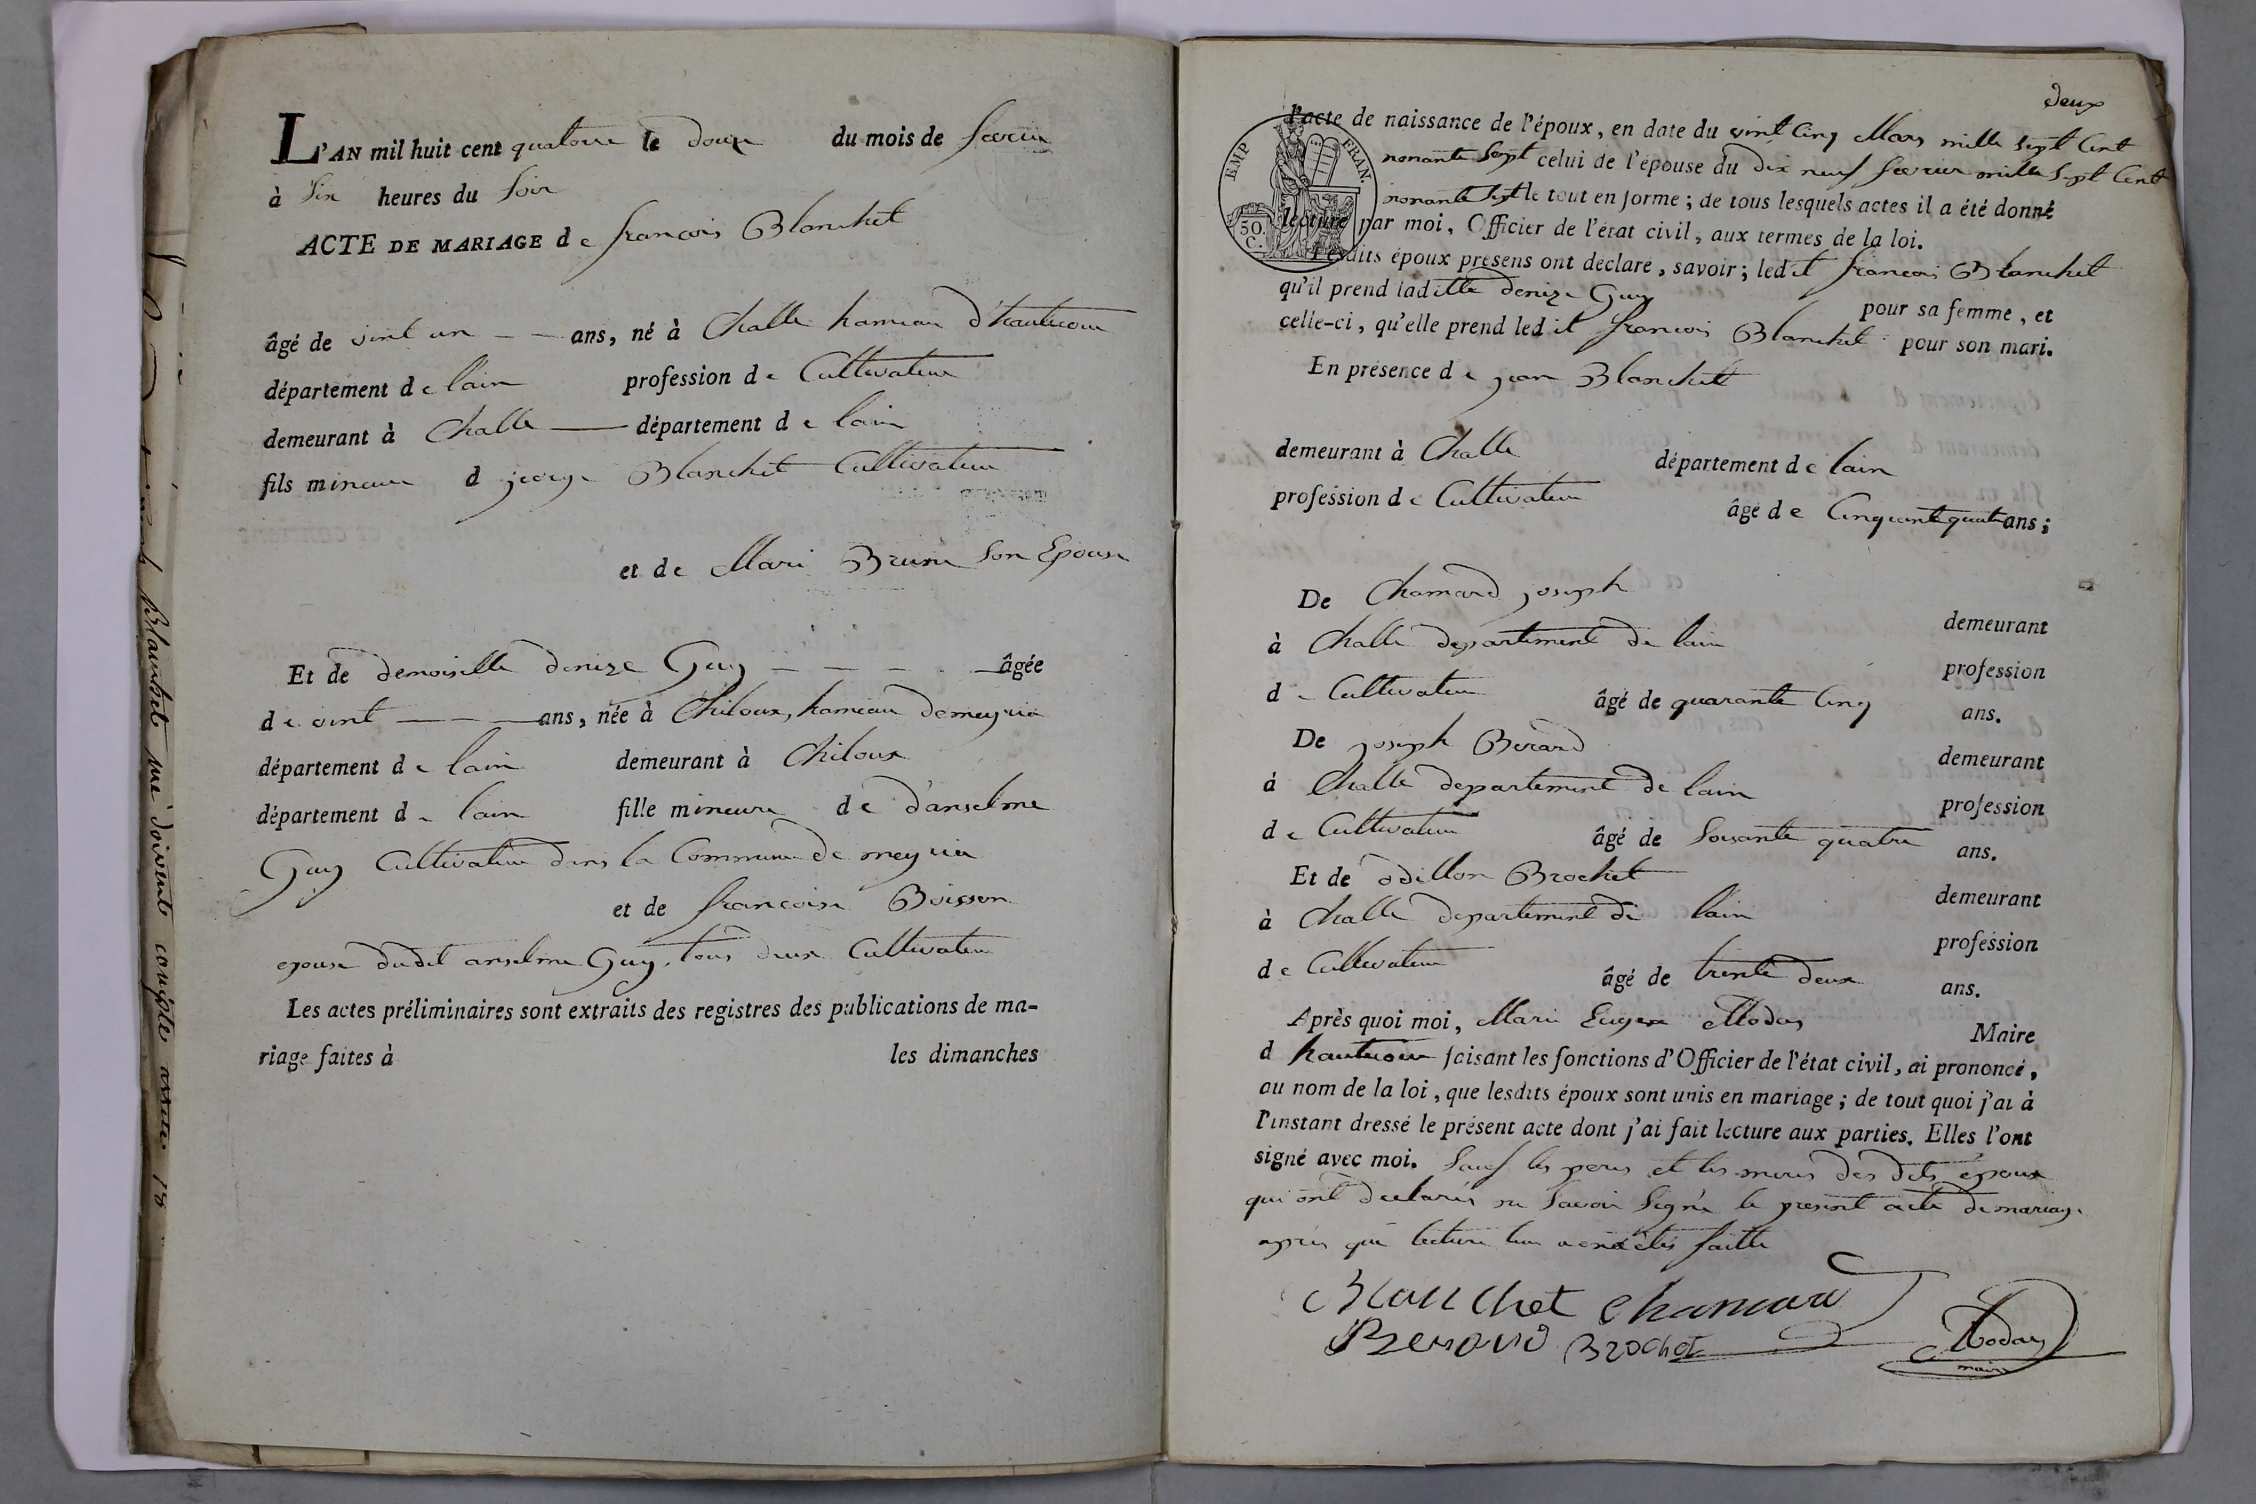 L'AN mil huit cent quatorze le douze du mois de fevrier
à Six heures du Soir
ACTE DE MARIAGE de françois Blanchet
âgé de vint un ans, né à Challe hameau d'hautecour
département de lain profession de Cultivateur
demeurant à Challe département de lain
fils mineur d george Blanchet Cultivateur
et de Marie Brune Son Epouse
Et de demoiselle denize Guy âgée
de vint ans, née à Chiloux, hameau de meyria
département de lain demeurant à Chiloux
département de lain fille mineure de d'anselme
Guy Cultivateur dans la Commune de meyria
et de françoise Boisson
epouse dudit anselme Guy, tous deux Cultivateur
Les actes préliminaires sont extraits des registres des publications de ma-
riage faites à les dimanches
Blanchet me doivent compte 18
deux
l'acte de naissance de l'époux, en date du vint Cinq Mars mille Sept Cent
nonante Sept celui de l'épouse du dix neuf fevrier mille Sept Cent
nonante Sept le tout en forme; de tous lesquels actes il a été donné
lecture par moi, Officier de l'état civil, aux termes de la loi.
Lesdits époux présens ont déclaré, savoir; ledit françois Blanchet
qu'il prend laditte denize Guy pour sa femme, et
celle-ci, qu'elle prend ledit françois Blanchet pour son mari.
En présence de jean Blanchet
demeurant à Challe département de lain
profession de Cultivateur âgé de Cinquante quatre ans;
De Chamard joseph demeurant
à Challe departement de lain profession
de Cultivateur âgé de quarante Cinq ans.
De joseph Berard demeurant
à Challe departement de lain profession
de Cultivateur âgé de Soixante quatre ans.
Et de odillon Brochet demeurant
à Challe departement de lain profession
de Cultivateur âgé de trente deux ans.
Après quoi moi, Marie Eugene Moday Maire
d hautecour faisant les fonctions d'Officier de l'état civil, ai prononcé,
au nom de la loi, que lesdits époux sont unis en mariage; de tout quoi j'ai à
l'instant dressé le présent acte dont j'ai fait lecture aux parties. Elles l'ont
signé avec moi. Sauf les peres et les meres des dits époux
qui ont declarés ne Savoir Signé le present acte de mariage
après que lecture leur a été faitte
Blanchet Chamard
Berard Brochet Moday
maire
EMP FRAN.
50. C.